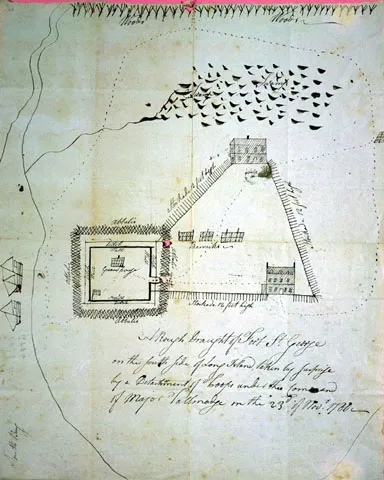 Woods
Woods
Stockade 12 feet high
abbatis
Barracks
Guard house
Stockade 12 feet high
abbatis
A Rough Draught of Fort St. George
on the south side of Long Island taken by surprise
by a Detachment of troops under the Command
of Major Tallmadge on the 23d of Novr. 1780